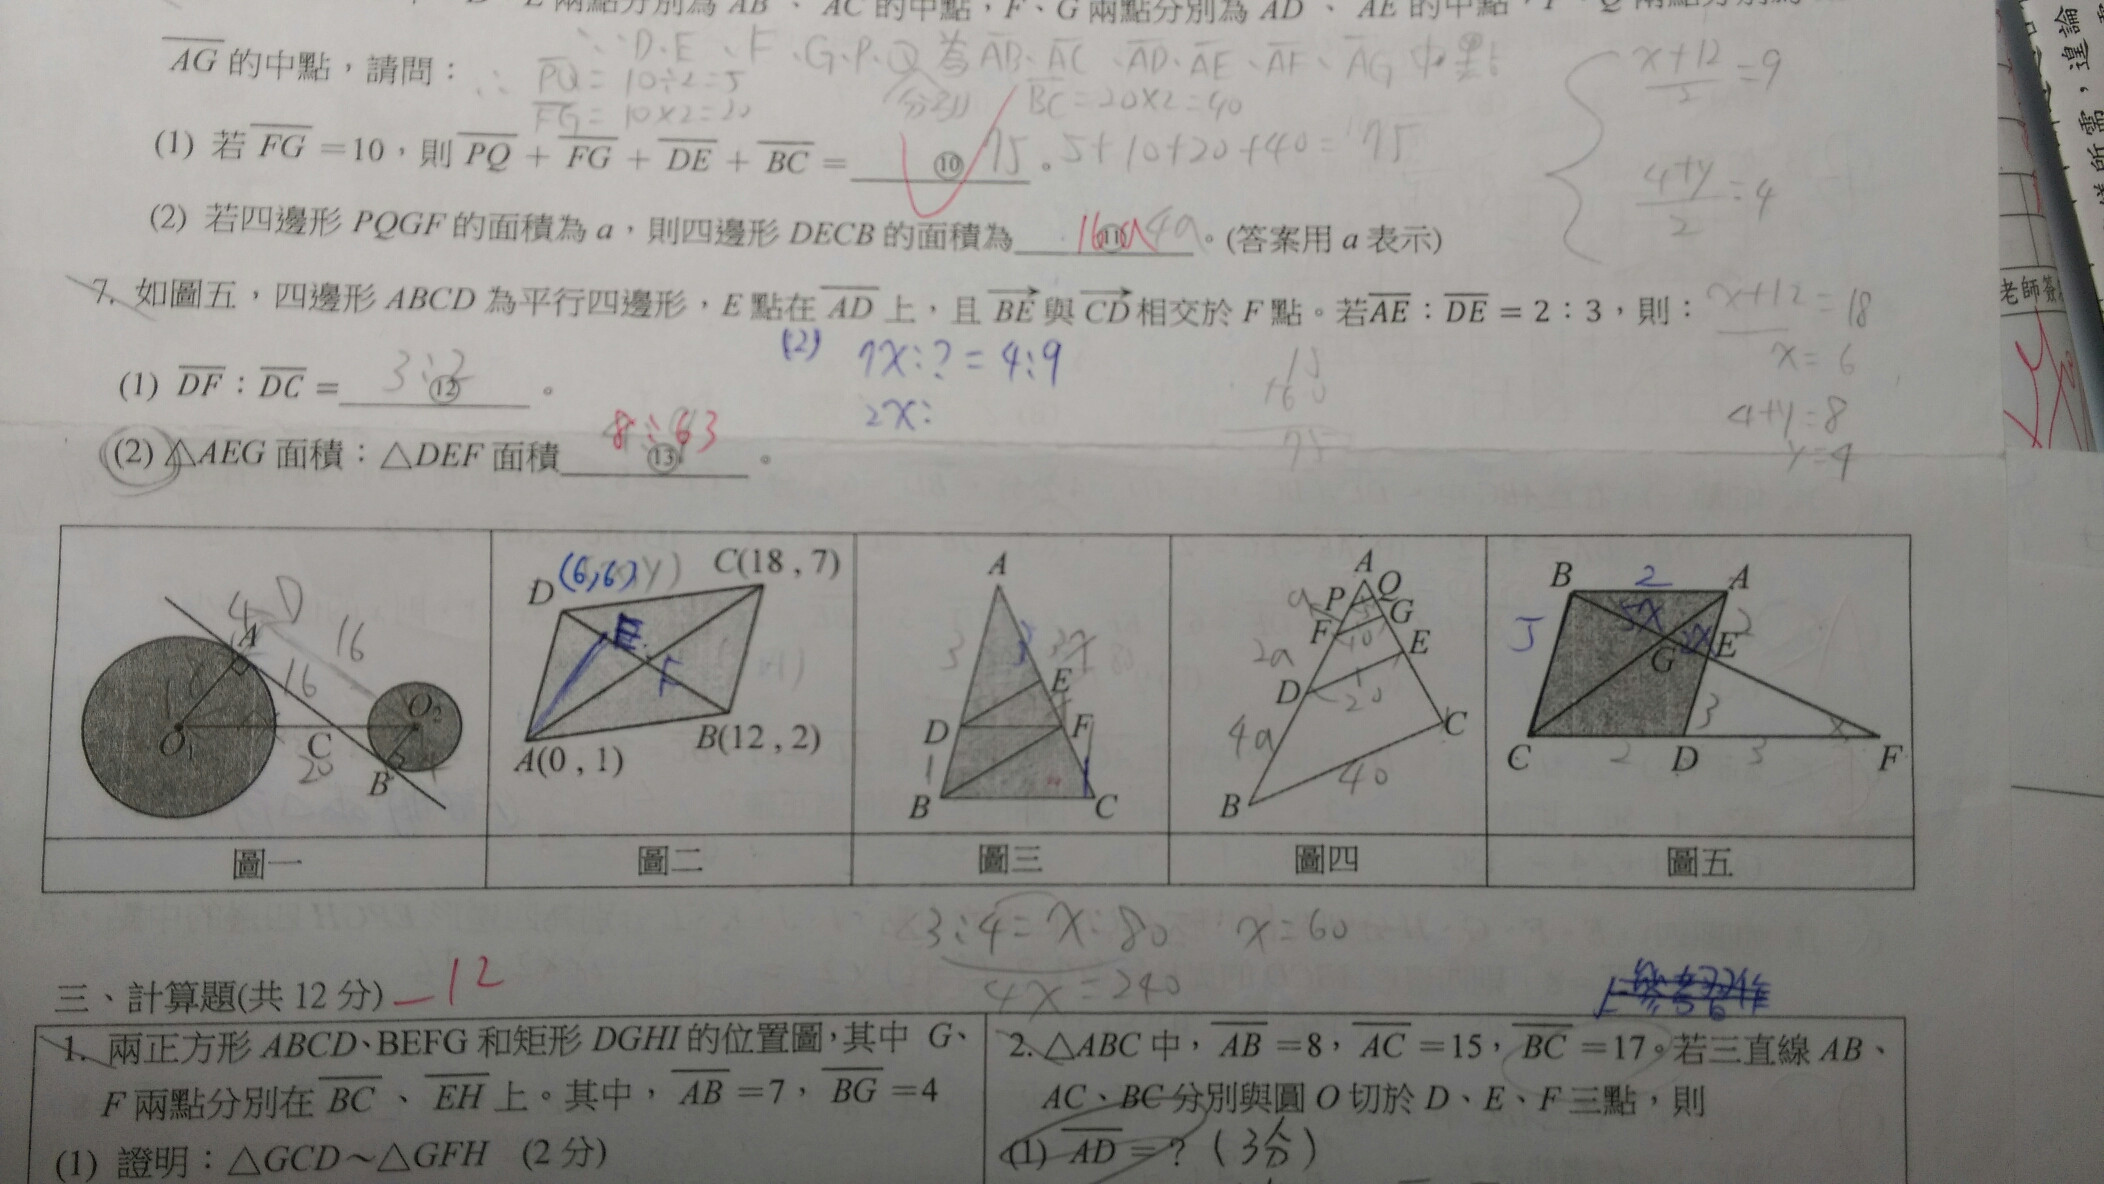 D、E 兩點分別為 AB、AC 的中點,F、G 兩點分別為 AD、AE 的中點,P、Q 兩點分別為
AG 的中點,請問:
∵D、E、F、G、P、Q 為 AB、AC、AD、AE、AF、AG 中點
分別
∴ PQ = 10÷2=5
FG = 10×2=20
BC = 20×2=40
(1) 若 FG =10,則 PQ + FG + DE + BC = ⑩ 75。5+10+20+40=75
(2) 若四邊形 PQGF 的面積為 a,則四邊形 DECB 的面積為 ⑪ 16a 4a。(答案用 a 表示)
x+12/2=9
4+y/2=4
x+12=18
x=6
4+y=8
y=4
7. 如圖五,四邊形 ABCD 為平行四邊形,E 點在 AD 上,且 BE 與 CD 相交於 F 點。若 AE:DE = 2:3,則:
(1) DF:DC = 3:2 ⑫ 。
(2) 7x:?=4:9
2x:
15
+60
75
(2) △AEG 面積:△DEF 面積 8:63 ⑬ 。
A
4
D
16
8
16
O1
C
20
O2
B
4
圖一
D
(6,6)
y)
C(18,7)
E
F
A(0,1)
B(12,2)
圖二
A
3
3
E
D
F
1
B
C
圖三
A
Q
a
P
G
F
10
E
2a
D
20
4a
C
B
40
圖四
B
2
A
5x
2
5
G
2x
E
3
C
2
D
3
F
圖五
3:4=x:80 x=60
4x=240
三、計算題(共 12 分) -12
1. 兩正方形 ABCD、BEFG 和矩形 DGHI 的位置圖,其中 G、
F 兩點分別在 BC、EH 上。其中,AB =7,BG =4
(1) 證明:△GCD~△GFH (2 分)
2. △ABC 中,AB =8,AC =15,BC =17。若三直線 AB、
AC、BC 分別與圓 O 切於 D、E、F 三點,則
(1) AD =? (3分)
老師簽